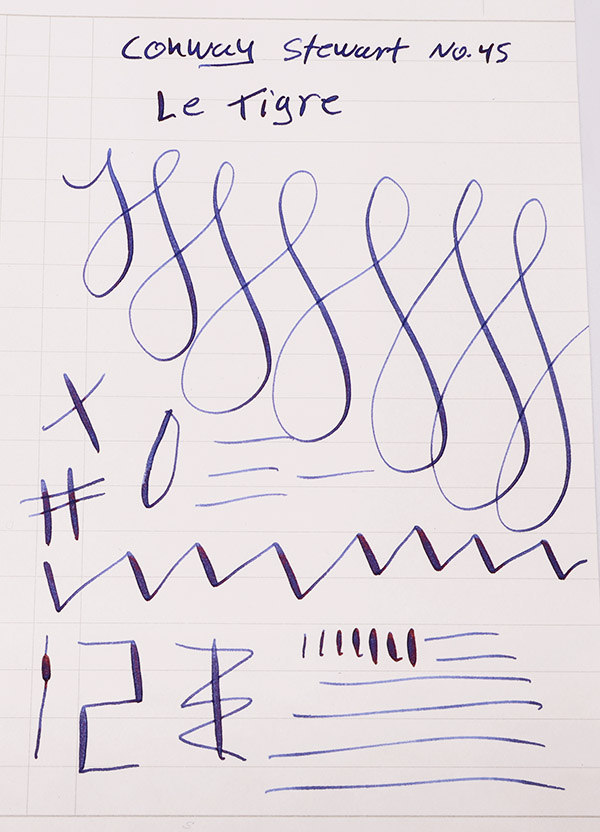 Conway Stewart No.45
Le Tigre